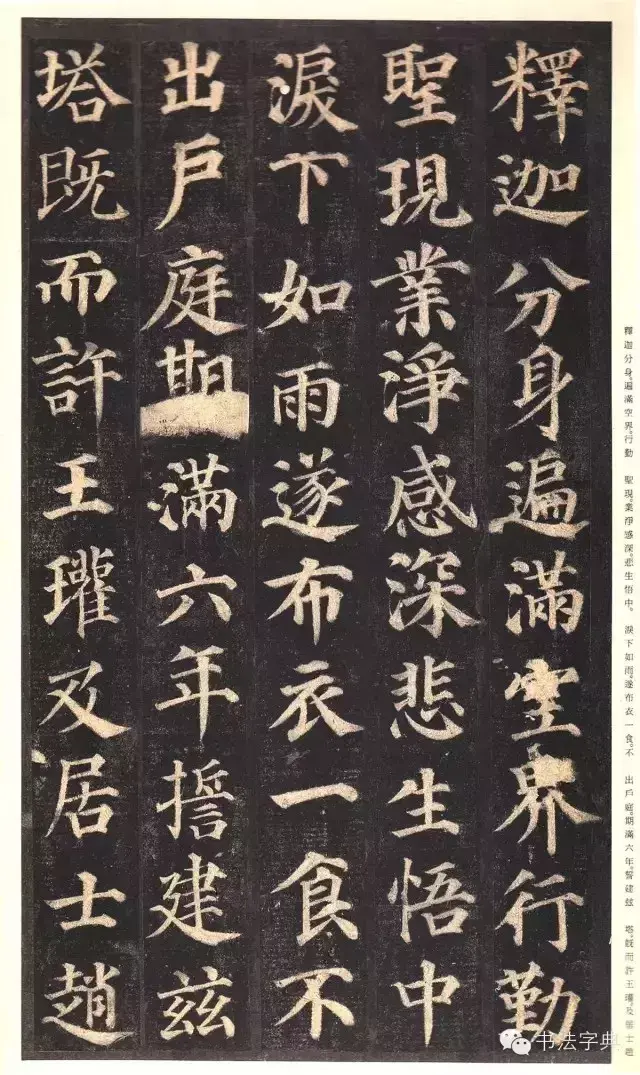 釋迦分身遍滿空界行勤
聖現業淨感深悲生悟中
淚下如雨遂布衣一食不
出戶庭期滿六年誓建茲
塔既而許王瓘及居士趙
釋迦分身。遍滿空界。行勤 聖現。業淨感深。悲生悟中。 淚下如雨。遂布衣一食。不 出戶庭。期滿六年。誓建玆 塔。既而許王瓘。及居士趙
书法字典